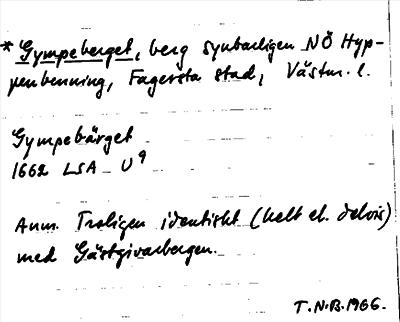 * Gympeberget, berg synbarligen NÖ Hyp-
penbenning, Fagersta stad, Västm. l.
Gympebärget
1662 LSA U9
Anm. Troligen identiskt (helt el. delvis)
med Gästgivarbergen.
T.N.B. 1966.